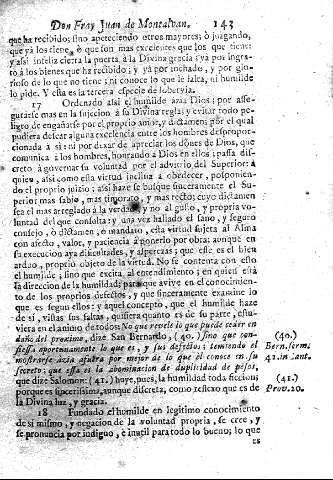 Don Fray Juan de Montalvan. 143
que ha recibido; sino apeteciendo otros mayores; ò juzgando,
que yá los tiene, ò que son mas excelentes que los que tiene;
y assi infeliz cierra la puerta à la Divina gracia; yá por ingra-
to à los bienes que ha recibido; y yá por inchado, y por glo-
rioso de lo que no tiene; ni conoce lo que le falta, ni humilde
lo pide. Y esta es la tercera especie de sobervia.
17 Ordenado assi el humilde azia Dios; por asse-
gurarse mas en la sujecion à sa Divina reglas; y evitar todo pe-
ligro de engañarse por el proprio amor, y dictamen; por el qual
pudiera desear alguna excelencia entre los hombres despropor-
cionada à sì: ni por dexar de apreciar los dones de Dios, que
comunica à los hombres, honrando à Dios en ellos; passa dis-
creto, à governar su voluntad por el advitrio del Superior: à
quien, assi como esta virtud inclina à obedecer, posponien-
do el proprio juicio; assi haze se busque sinceramente el Su-
perior mas sabio, mas timorato, y mas recto; cuyo dictamen
sea el mas arreglado à la verdad, y no al gusto, y propria vo-
luntad del que consulta: y una vez hallado el sano, y seguro
consejo, ò dictamen, ò mandato, esta virtud sujeta al Alma
con afecto, valor, y paciencia à ponerlo por obra: aunque en
su execucion aya dificultades, y asperezas; que este es el bien
arduo, proprio objeto de la virtud. No se contenta con esto
el humilde; sino que excita al entendimiento; en quien está
la direccion de la humildad; para que avive en el conocimien-
to de los proprios defectos, y que sinceramente examine lo
que es segun ellos: y aquel concepto, que el humilde haze
de sì, vistas sus faltas, quisiera quanto es de su parte, estu-
viera en el animo de todos. No que revele lo que puede ceder en
daño del proximo, dize San Bernardo, (40.) sino que con-
fiessa oportunamente lo que es, y sus defectos: temiendo el
mostrarse azia afuera por mejor de lo que èl conoce en su
secreto: que essa es la abominacion de duplicidad de pesos,
que dize Salomon: (41.) huye, pues, la humildad toda ficcion;
porque es sincerissima, aunque discreta, como reflexo que es de
la Divina luz, y gracia.
18 Fundado el humilde en legitimo conocimiento
de sì mismo, y negacion de la voluntad propria, se cree, y
se pronuncia por indigno, è inutil para todo lo bueno; lo que
es
(40.)
Bern. serm.
42. in Cant.
(41.)
Prov. 20.